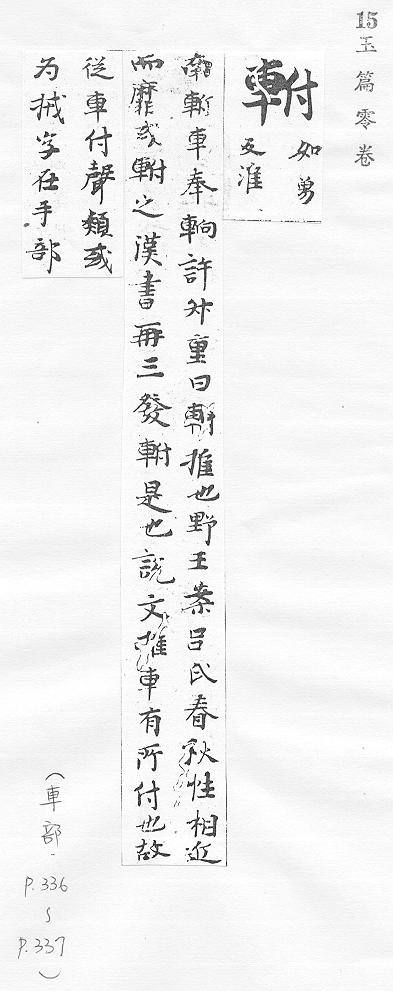 15 玉篇零卷
軵 如勇
反淮
南軵車奉輈許叔重曰軵推也野王案吕氏春秋性相近
而靡或軵之漢書再三發軵是也說文推車有所付也故
從車付聲類或
为搑字在手部
(車部.
P.336
~
P.337
)